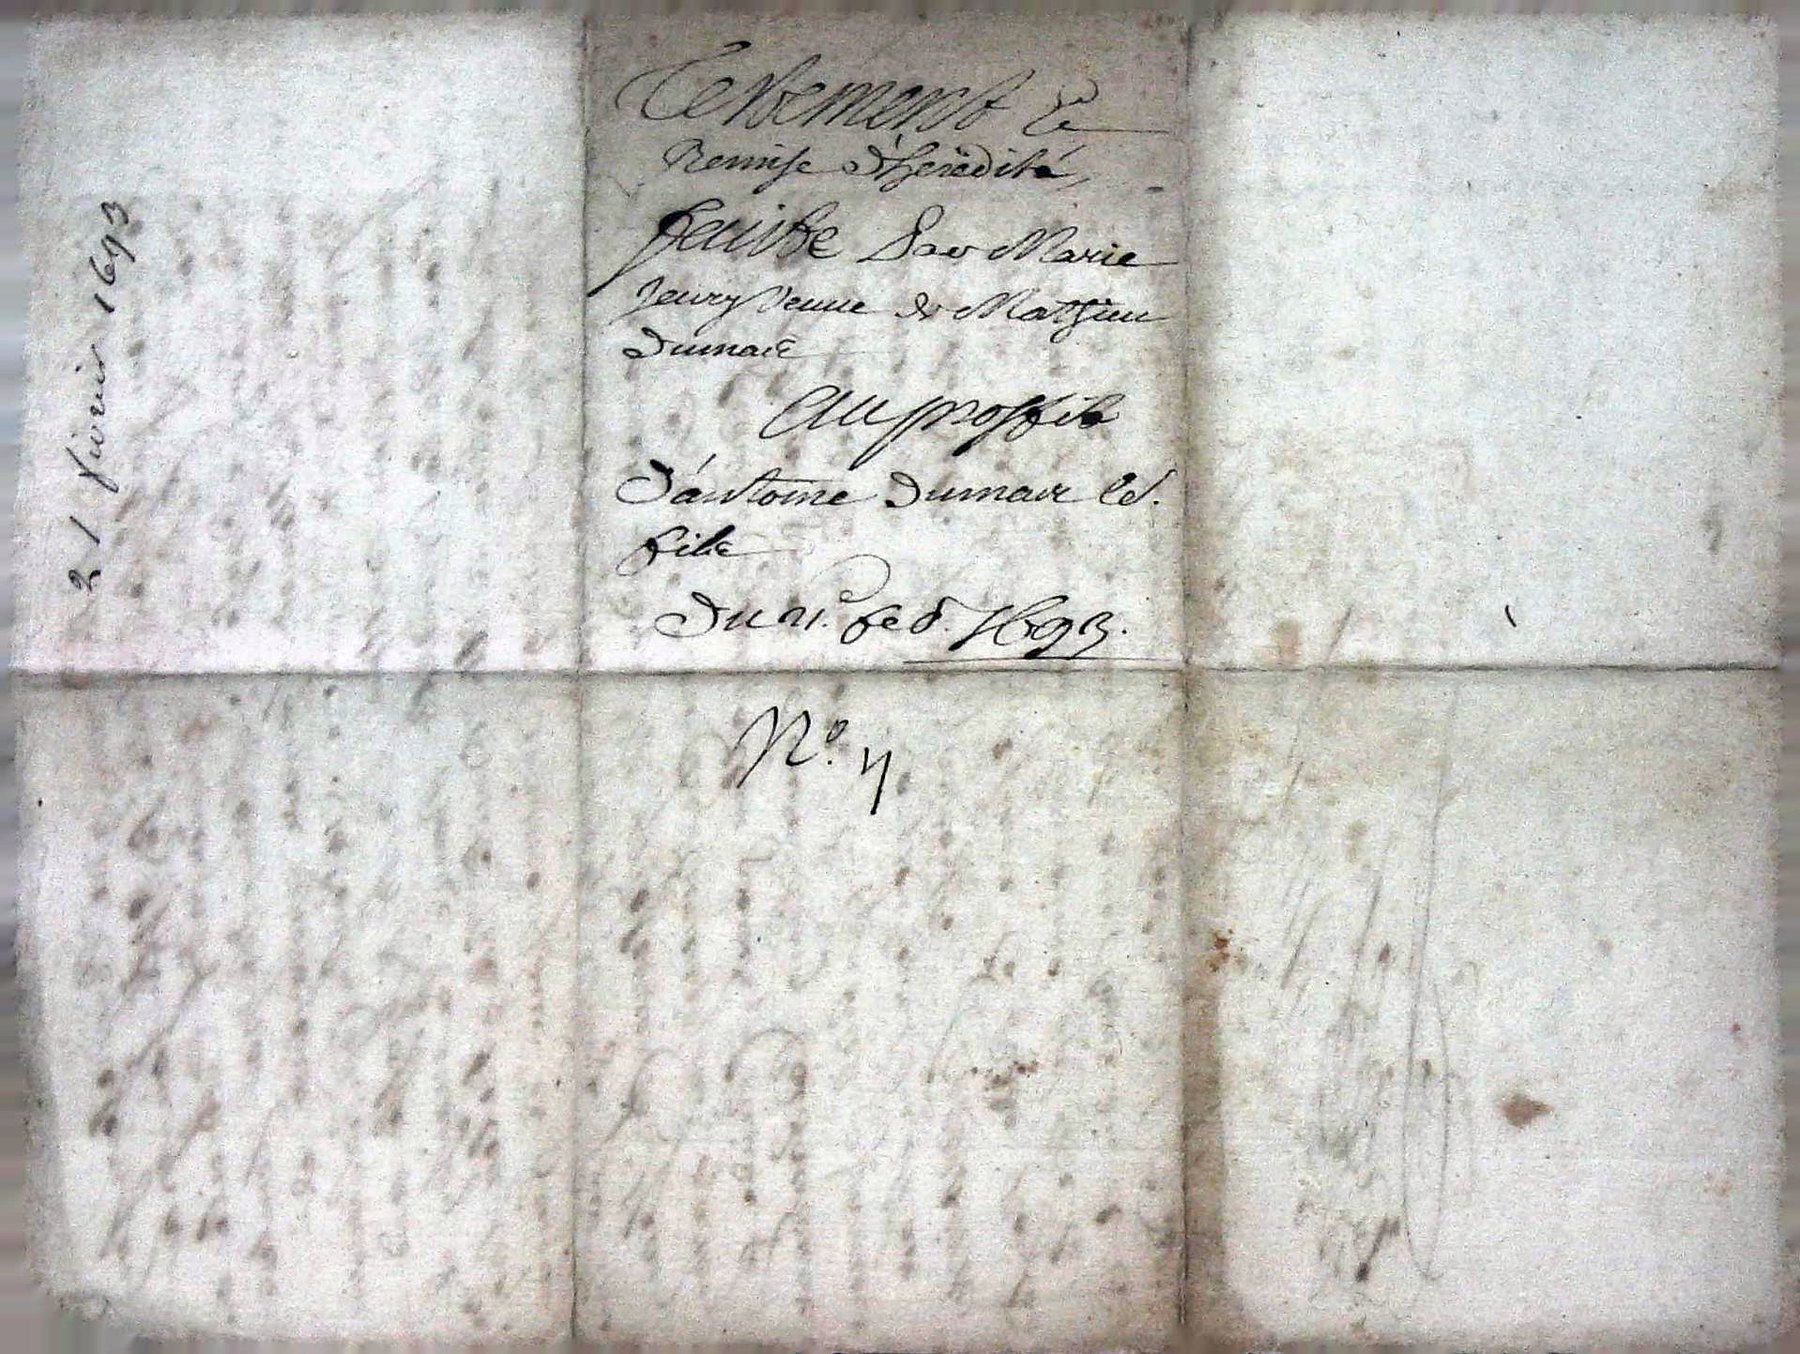 21 fevrier 1693
Testement &
Remise d'heredité,
faiste Par Marie
Jeury veuue de Mathieu
Dumait
Au proffit
d'antoine Dumait
fils
Du 21e feb. 1693.
No. 4